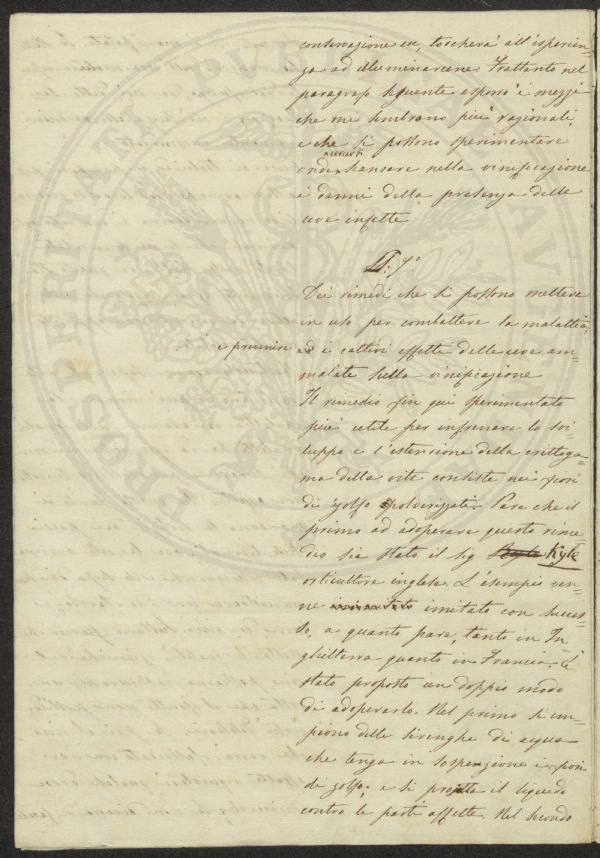 conservazione ecc, toccherà all'esperien-
za ad illuminarcene. Frattanto nel
paragrafo seguente esporrò i mezzi
che mi sembrano più razionali,
e che si possono sperimentare
onde scansare nella vinificazione
i danni della presenza delle
uve infette
§: 7.°
Dei rimedi che si possono mettere
in uso per combattere la malattia,
e prevenire i cattivi effetti delle uve am=
malate sulla vinificazione
Il rimedio fin qui sperimentato
più utile per infrenare lo svi=
luppo e l'estensione della crittoga=
ma della vite consiste nei fiori
di zolfo spolverizzati. Pare che il
primo ad adoperare questo rime
dio sia stato il sig Kyle
orticultore inglese. L'esempio ven=
ne imitato con succes=
so, a quanto pare, tanto in In
ghilterra quanto in Francia. È
stato proposto un doppio modo
di adoperarlo. Nel primo si em=
piono delle siringhe di acqua
che tenga in sospenzione i fiori
di zolfo; e si projetta il liquido
contro le parti affette. Nel secondo